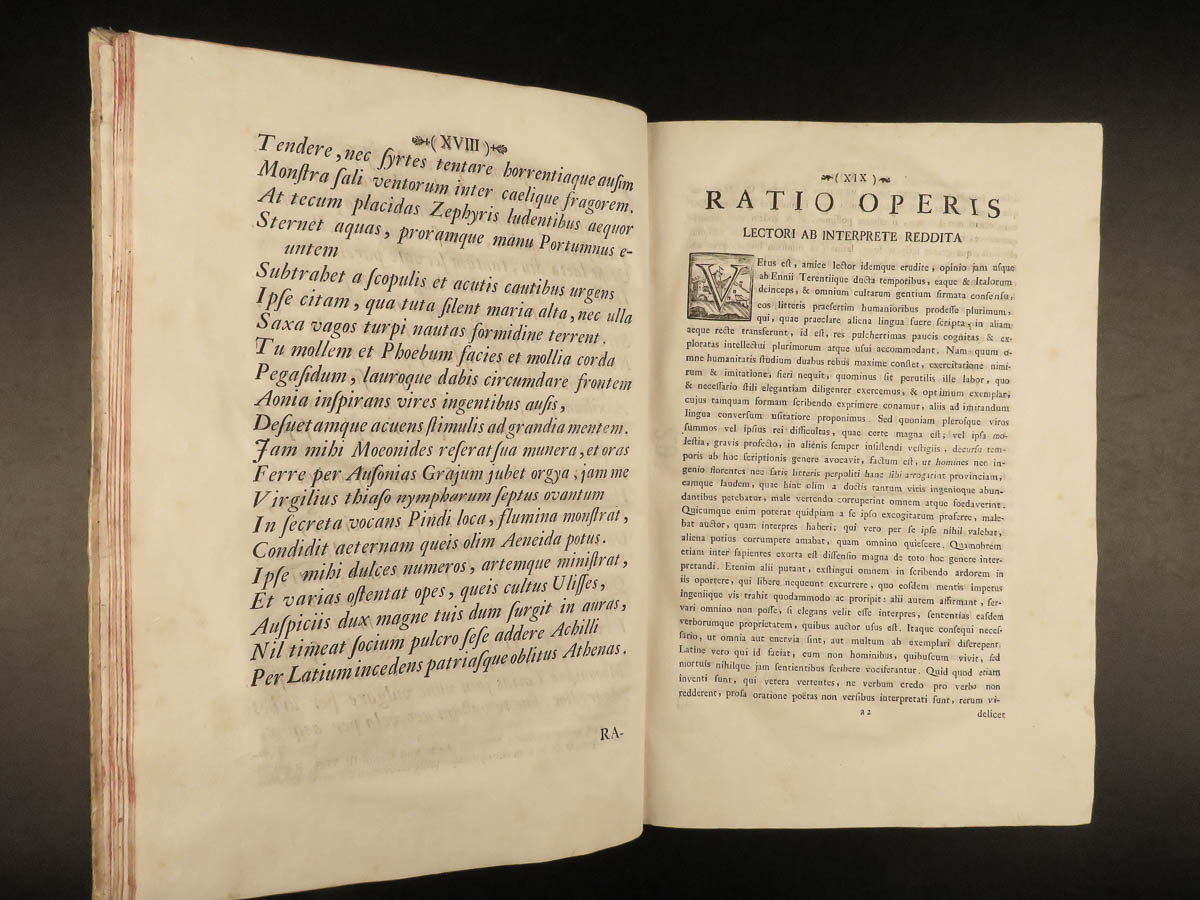 (XVIII)
Tendere, nec ſyrtes tentare horrentiaque auſim
Monſtra ſali ventorum inter caelique fragorem.
At tecum placidas Zephyris ludentibus aequor
Sternet aquas, proramque manu Portumnus e-
untem
Subtrahet a ſcopulis et acutis cautibus urgens
Ipſe citam, qua tuta ſilent maria alta, nec ulla
Saxa vagos turpi nautas formidine terrent.
Tu mollem et Phoebum facies et mollia corda
Pegaſidum, lauroque dabis circumdare frontem
Aonia inſpirans vires ingentibus auſis,
Deſuetamque acuens ſtimulis ad grandia mentem.
Jam mihi Moeonides referat ſua munera, et oras
Ferre per Auſonias Grajum jubet orgya; jam me
Virgilius thiaſo nympharum ſeptus ovantum
In ſecreta vocans Pindi loca, flumina monſtrat,
Condidit aeternam queis olim Aeneida potus.
Ipſe mihi dulces numeros, artemque miniſtrat,
Et varias oſtentat opes, queis cultus Uliſſes,
Auſpiciis dux magne tuis dum ſurgit in auras,
Nil timeat ſocium pulcro ſeſe addere Achilli
Per Latium incedens patriaſque oblitus Athenas.
RA-
(XIX)
RATIO OPERIS
LECTORI AB INTERPRETE REDDITA
VEtus eſt, amice lector idemque erudite, opinio jam uſque
ab Ennii Terentiique ducta temporibus, eaque & Italorum
deinceps, & omnium cultarum gentium firmata conſenſu,
eos litteris praeſertim humanioribus prodeſſe plurimum,
qui, quae praeclare aliena lingua fuere ſcripta, in aliam
aeque recte transferunt, id eſt, res pulcherrimas paucis cognitas & ex-
ploratas intellectui plurimorum atque uſui accommodant. Nam quum o-
mne humanitatis ſtudium duabus rebus maxime conſtet, exercitatione nimi-
rum & imitatione, fieri nequit, quominus ſit perutilis ille labor, quo
& neceſſario ſtili elegantiam diligenter exercemus, & optimum exemplar,
cujus tamquam formam ſcribendo exprimere conamur, aliis ad imitandum
lingua converſum uſitatiore proponimus. Sed quoniam pleroſque viros
ſummos vel ipſius rei difficultas, quae certe magna eſt, vel ipſa mo-
leſtia, gravis profecto, in alienis ſemper inſiſtendi veſtigiis, decurſu tem-
poris ab hoc ſcriptionis genere avocavit, factum eſt, ut homines nec in-
genio florentes nec ſatis litteris perpoliti hanc ſibi arrogarint provinciam,
eamque laudem, quae hinc olim a doctis tantum viris ingenioque abun-
dantibus petebatur, male vertendo corruperint omnem atque foedaverint.
Quicumque enim poterat quidpiam a ſe ipſo excogitatum proferre, male-
bat auctor, quam interpres haberi; qui vero per ſe ipſe nihil valebat,
aliena potius corrumpere amabat, quam omnino quieſcere. Quamobrem
etiam inter ſapientes exorta eſt diſſenſio magna de toto hoc genere inter-
pretandi. Etenim alii putant, exſtingui omnem in ſcribendo ardorem in
iis oportere, qui libere nequeunt excurrere, quo eoſdem mentis impetus
ingeniique vis trahit quodammodo ac proripit: alii autem affirmant, ſer-
vari omnino non poſſe, ſi elegans velit eſſe interpres, ſententias eaſdem
verborumque proprietatem, quibus auctor uſus eſt. Itaque conſequi neceſ-
ſario, ut omnia aut enervia ſint, aut multum ab exemplari diſcrepent.
Latine vero qui id faciat, eum non hominibus, quibuſcum vivit, ſed
mortuis nihilque jam ſentientibus ſcribere vociferantur. Quid quod etiam
inventi ſunt, qui vetera vertentes, ne verbum credo pro verbo non
redderent, proſa oratione poëtas non verſibus interpretati ſunt, rerum vi-
a2 delicet